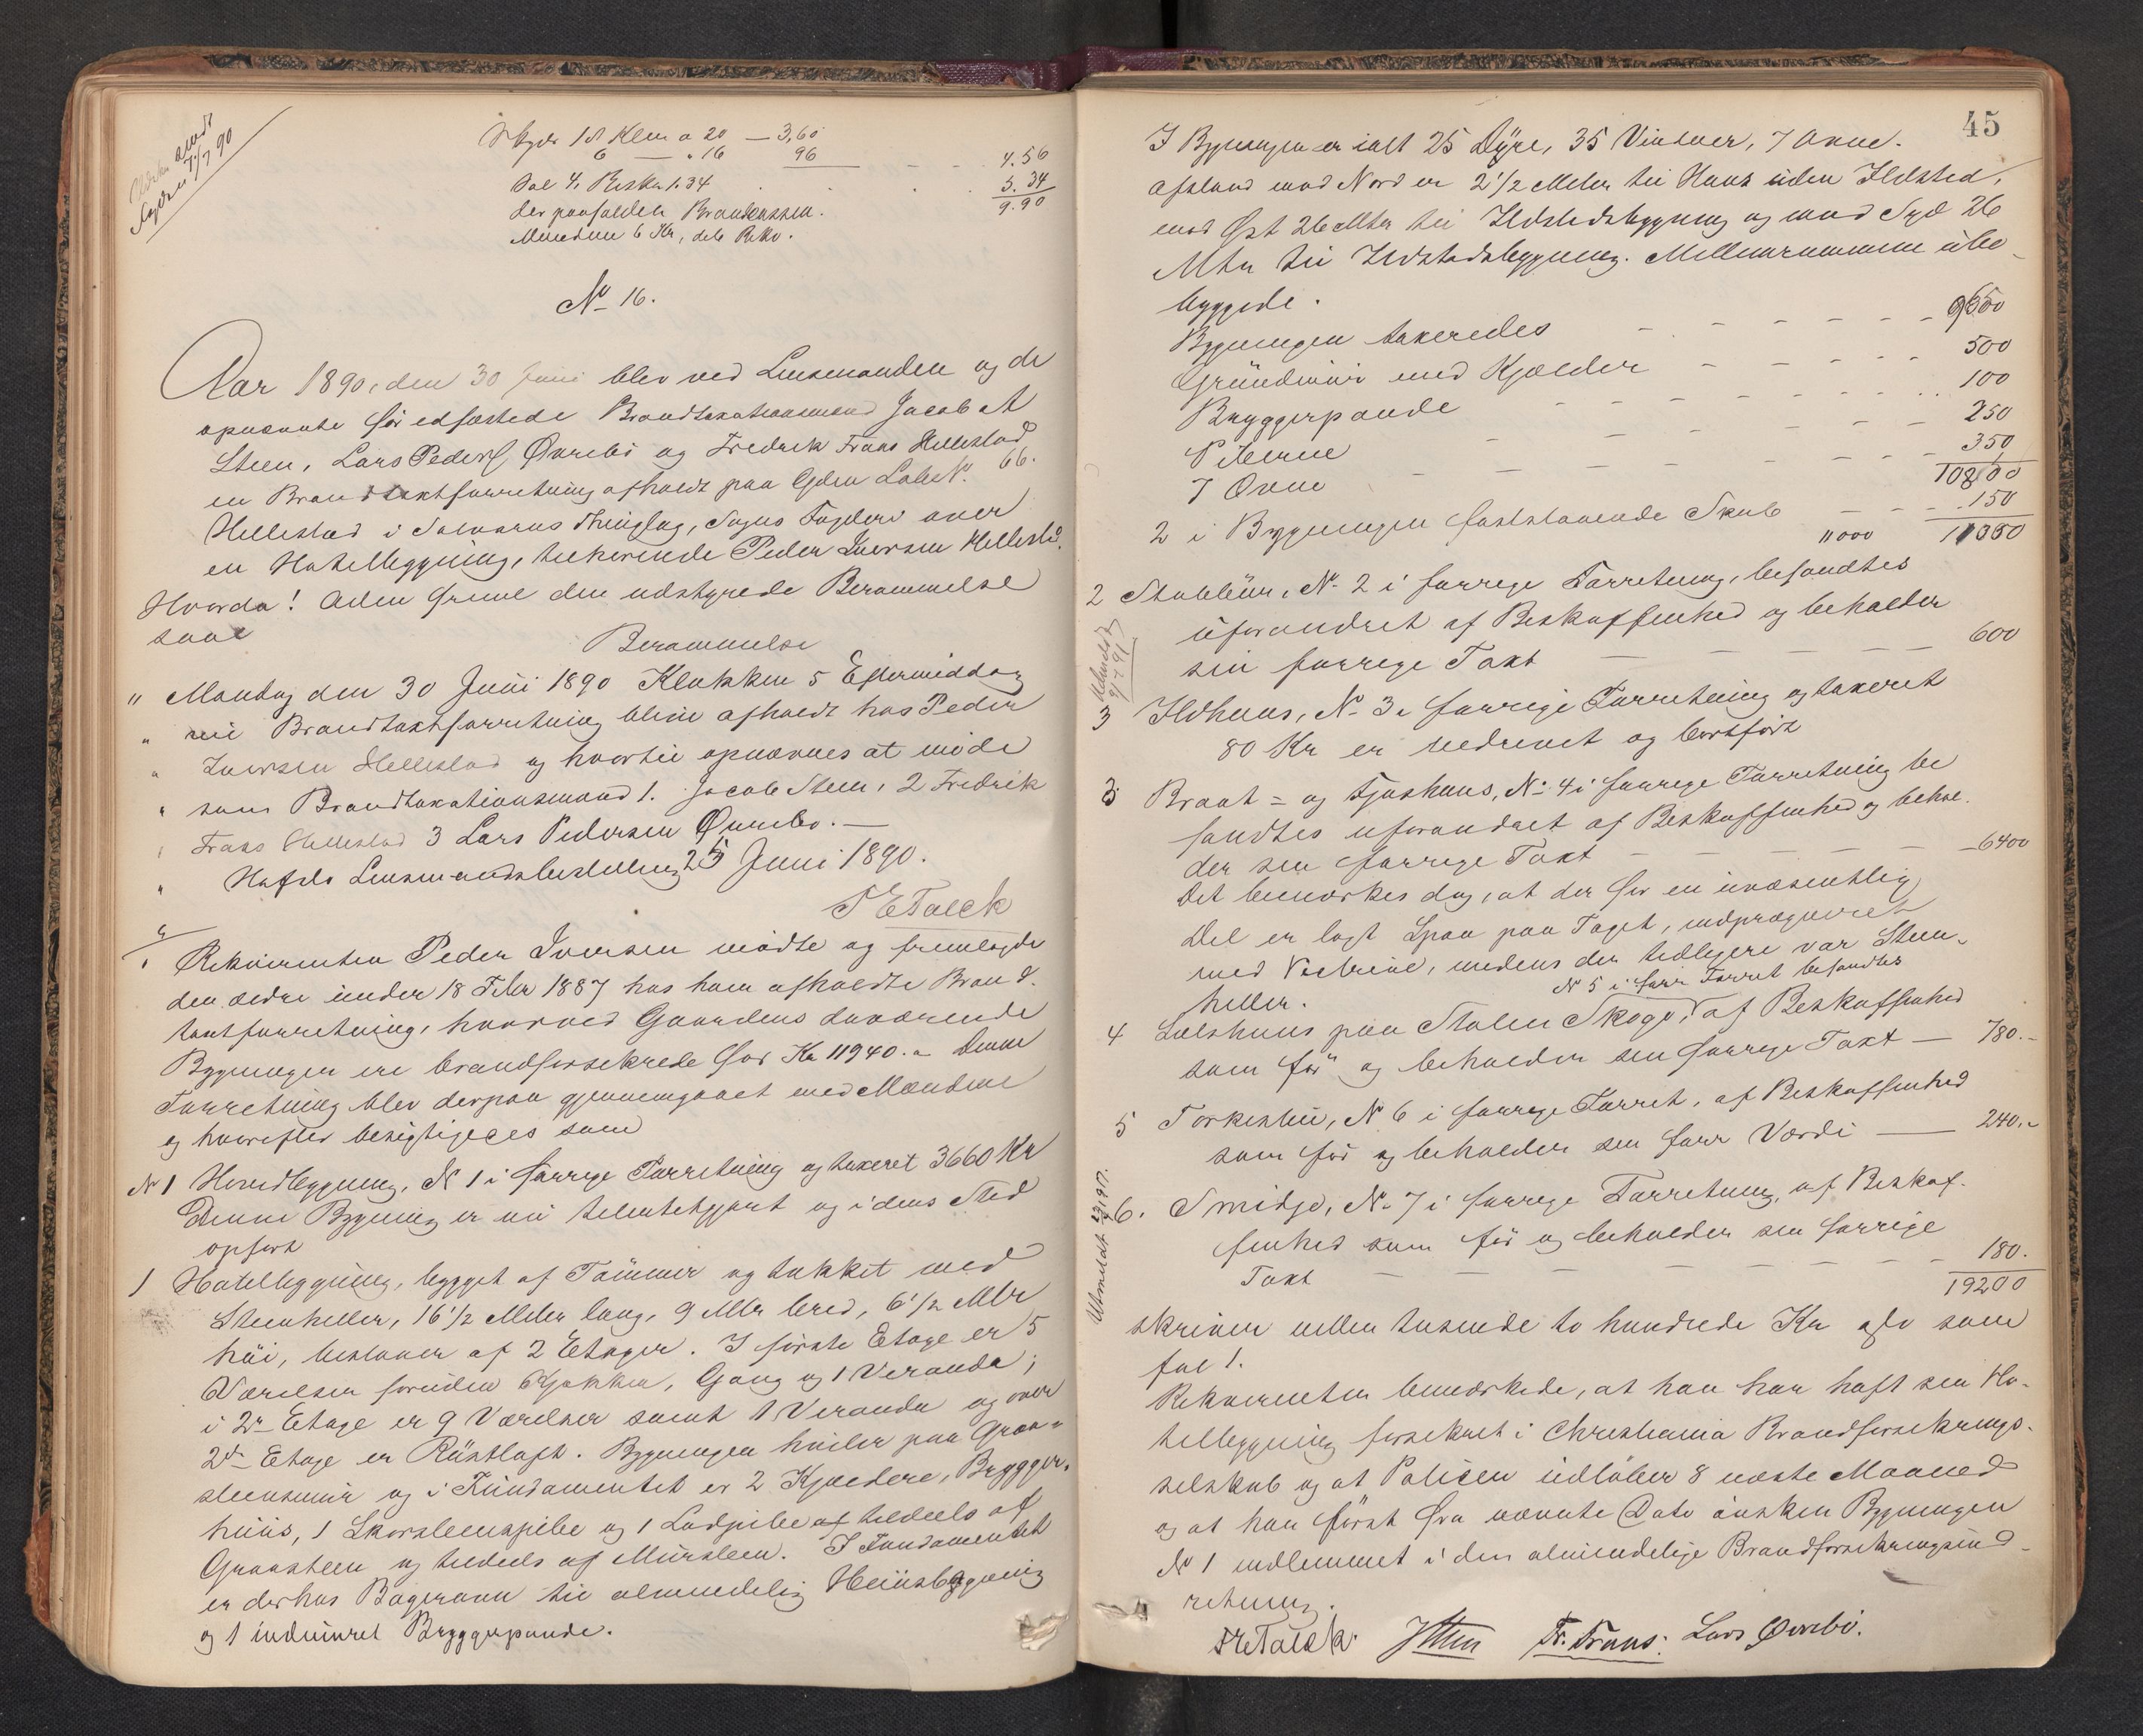 Skyds 18 Klm a 20 — 3,60
6 — " 16 96 4.56
Sal 4, Riska 1.34 5.34
der paafalder Brandkassen. 9.90
Mændene 6 Kr, dele Rekv.
No 16.
Aar 1890, den 30 Juni blev ved Lensmanden og de
opnævnte før edfæstede Brandtaxationsmænd Jacob A
Steen, Lars Peders. Øvrebø og Fredrik Frans Hellestad
en Brandtaxtforretning afholdt paa Gden Løbe No. 66.
Hellestad i Solvorns Thinglag, Sogns Fogderi over
en Hotelbygning, tilhørende Peder Iversen Hellestad.
Hvorda! Aden Grime den udstyrede Berammelse
saal.
Berammelse
" Mandag den 30 Juni 1890 Klokken 5 Eftermiddag
" vil Brandtaxtforretning blive afholdt hos Peder
" Iversen Hellestad og hvortil opnævnes at møde
" som Brandtaxationsmænd 1. Jacob Steen, 2 Fredrik
" Frans Hellestad 3 Lars Pedersen Øvrebø. —
" Hafslo Lensmandsbestilling 25 Juni 1890.
T E Falck
Rekvirenten Peder Iversen mødte og fremlagde
den ældre under 18 Febr 1887 hos ham afholdte Brand-
taxtforretning, hvorved Gaardens daværende
Bygninger ere brandforsikrede for Kr 11940.- Denne
Forretning blev derpaa gjennemgaaet med Mændene
og hvorefter besigtigedes som
No 1 Hovedbygning, No 1 i forrige Forretning og taxeret 3660 Kr
Denne Bygning er nu tilintetgjort og i dens Sted
opført
1 Hotelbygning, bygget af Tømmer og tækket med
Steenheller, 16 1/2 Meter lang, 9 Mtr bred, 6 1/2 Mtr
høi, bestaaer af 2 Etager. I første Etage er 5
Værelser foruden Kjøkken, Gang og 1 Veranda;
i 2n Etage er 9 Værelser samt 1 Veranda og over
2den Etage er Røstloft. Bygningen hviler paa Graa-
steensmur og i Fundamentet er 2 Kjældere, Brygger-
huus, 1 Skorsteenspibe og 1 Ladpibe af tildeels af
Graasteen og tildeels af Mursteen. I Fundamentet
er derhos Bagerovn til almindelig Huusbygning
og 1 indmuret Bryggepande.
45
I Bygningen er ialt 25 Døre, 35 Vinduer, 7 Ovne.
Afstand mod Nord er 2 1/2 Meter til Huus uden Ildsted,
mod Øst 26 Mtr til Ildstedsbygning og mod Syd 26
Mtr til Ildstedsbygning. Mellemrummene ube-
byggede.
Bygningen taxeredes 9600
Grundmur med Kjælder 500
Bryggerpande 100
Piberne 250
7 Ovne 350
10800
2 i Bygningen faststaaende Skab 150
11000 11350
2 Stabbuur, No 2 i forrige Forretning, befandtes
uforandret af Beskaffenhed og beholder
sin forrige Taxt 600
3 Ildhuus, No 3 i forrige Forretning og taxeret
80 Kr er nedrevet og bortført
3 Braat- og Fjøshuus, No 4 i forrige Forretning be
fandtes uforandret af Beskaffenhed og behol-
der sin forrige Taxt 6400
Det bemærkes dog, at der for en uvæsentlig
Del er lagt Spaan paa Taget, imprægneret
med Vitriol, medens der tidligere var Steen-
heller.
No 5 i forr Forret befandtes
4 Sælshuus paa Stølen Skoge, af Beskaffenhed
som før og beholder sin forrige Taxt — 780.-
5 Torkestue, No 6 i forrige Forret, af Beskaffenhed
som før og beholder sin forr Værdi — 240.-
6. Smidje, No 7 i forrige Forretning, af Beskaf-
fenhed som før og beholder sin forrige
Taxt 180.
19200
skriver nitten tusende to hundrede Kr
Rekvirenten bemærkede, at han har haft sin Ho-
telbygning forsikret i Christiania Brandforsikrings-
selskab og at Policen udløber 8 næste Maaned
og at han først fra nævnte Dato ønsker Bygningen
No 1 indlemmet i den almindelige Brandforsikringsind-
retning.
T E Falck. J Steen Fr. Frans. Lars Øvrebø.